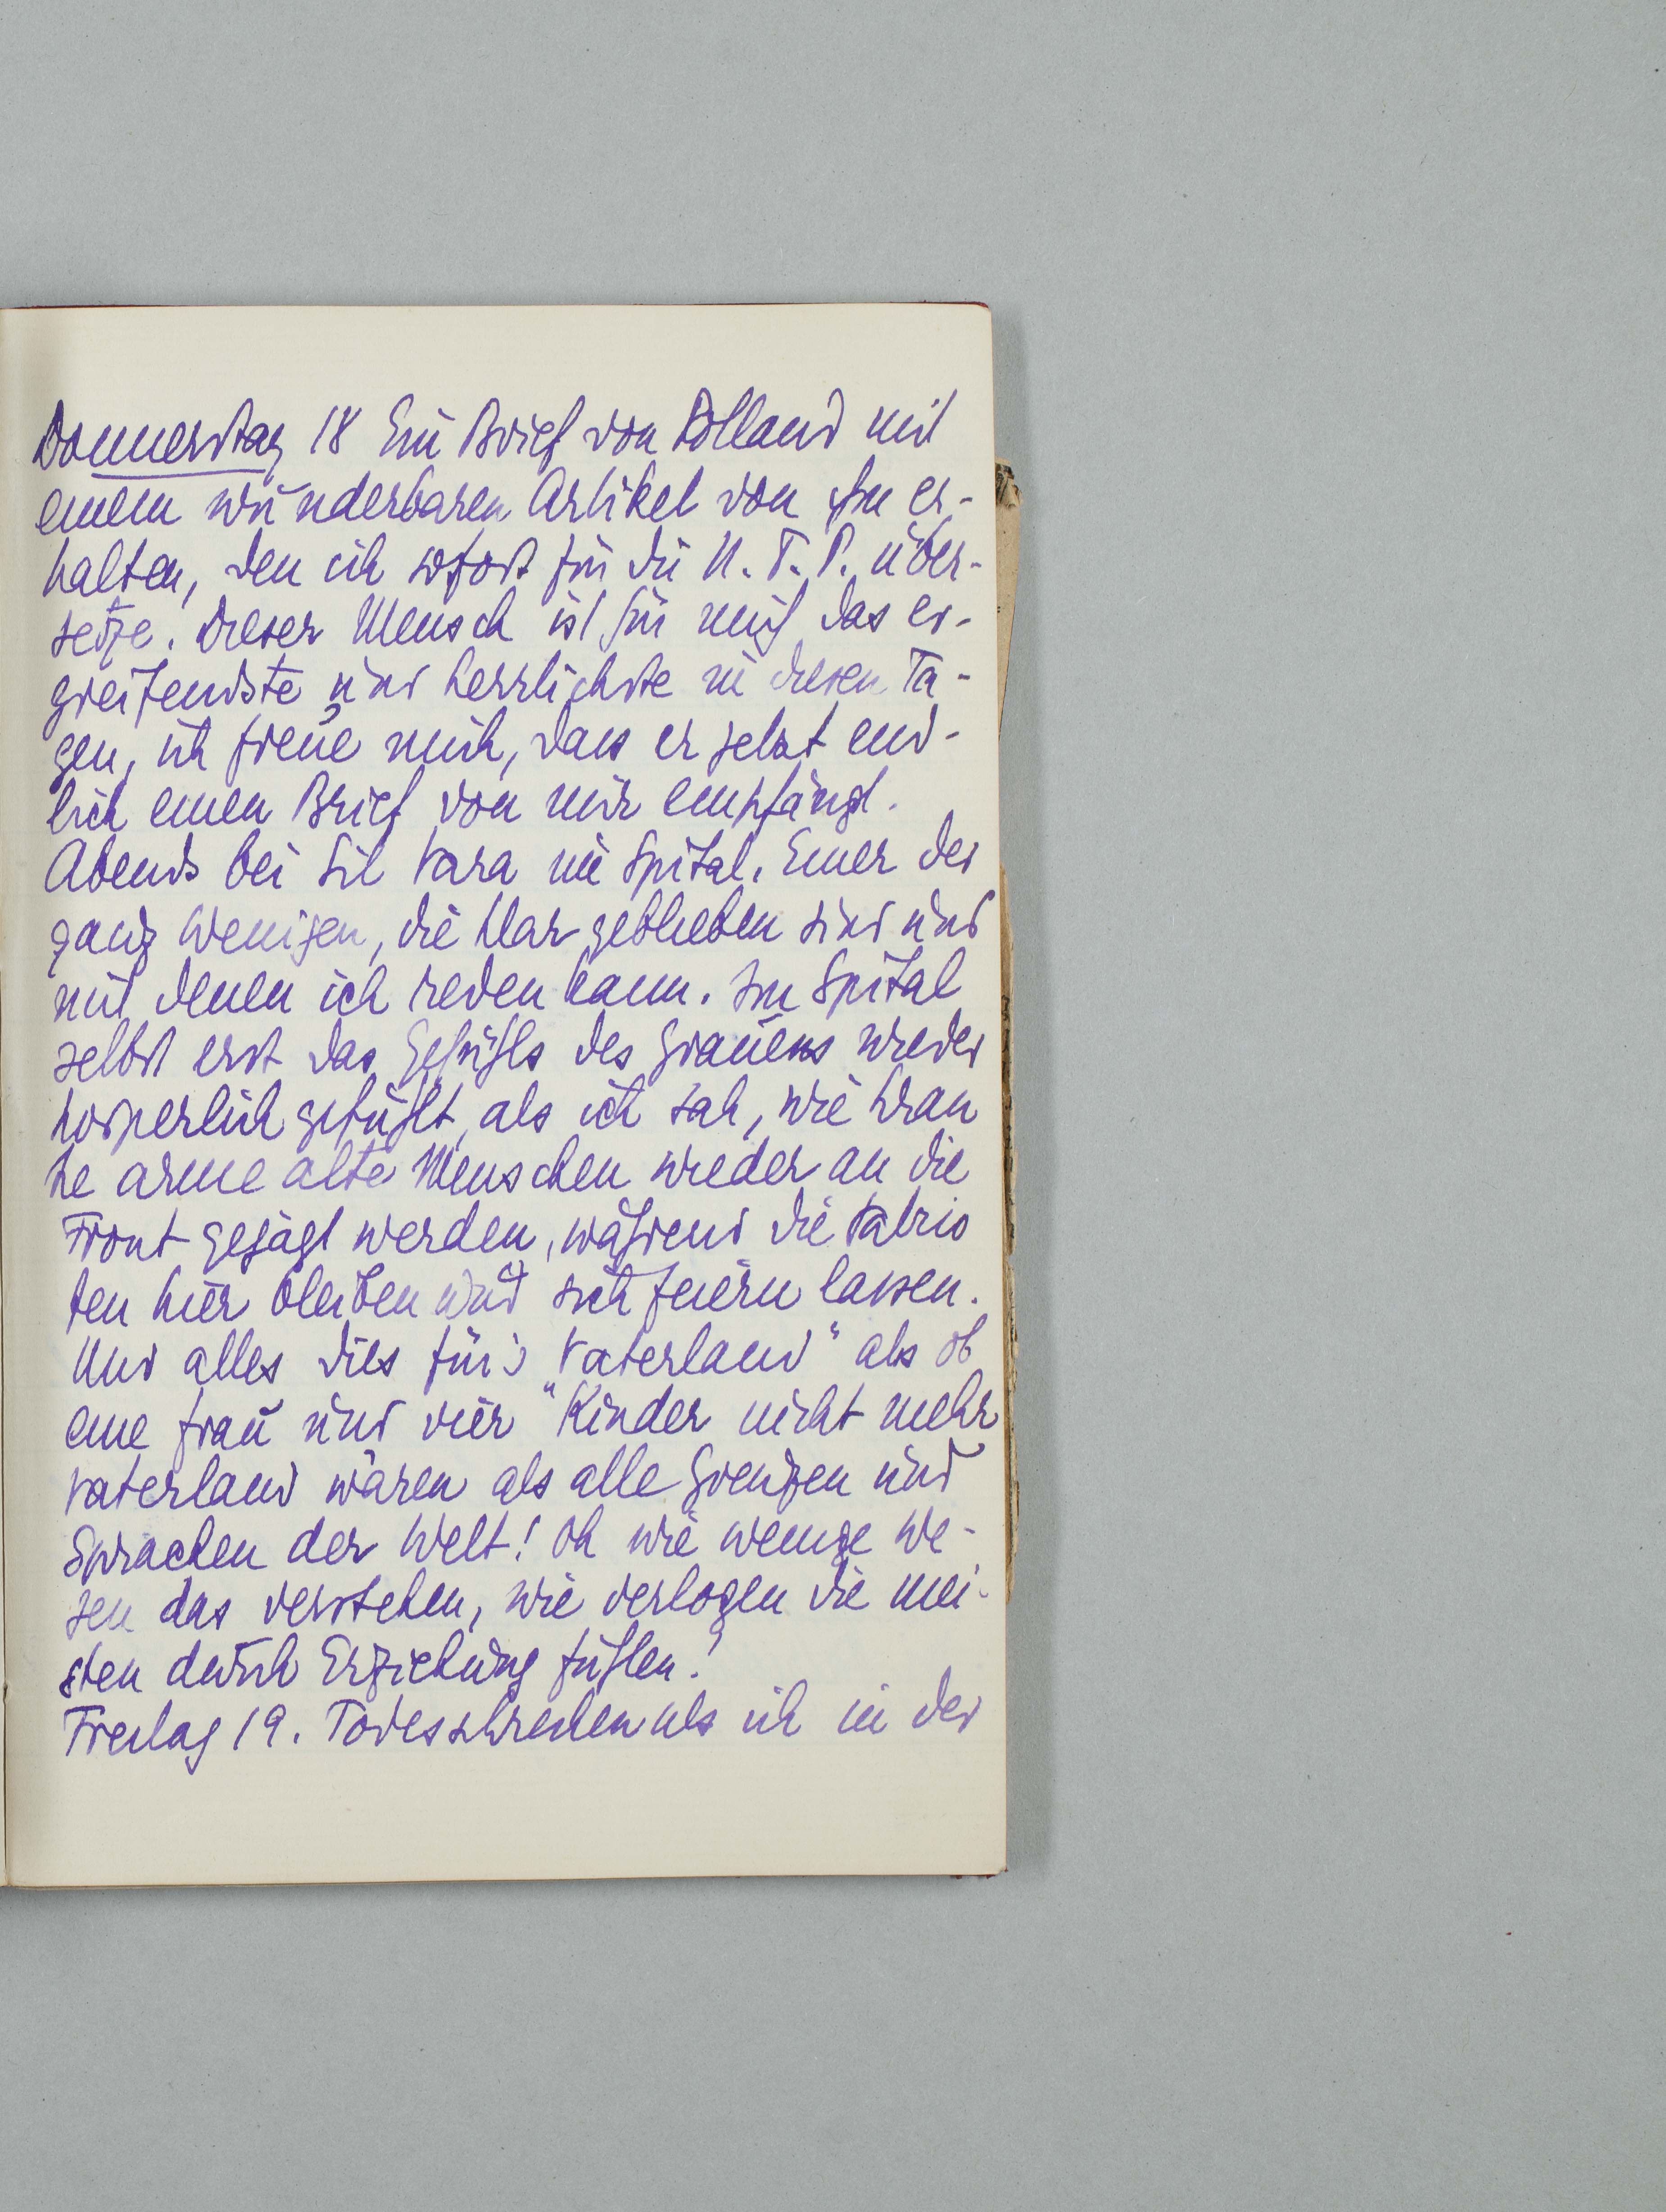 Donnerstag 18 Ein Brief von Rolland mit
einem wunderbaren Artikel von ihm er-
halten, den ich sofort für die N. F. P. über-
setze. Dieser Mensch ist für mich das er-
greifendste und herrlichste in diesen Ta-
gen, ich freue mich, dass er jetzt end-
lich einen Brief von mir empfängt.
Abends bei Sil Vara im Spital. Einer der
ganz Wenigen, die klar geblieben sind und
mit denen ich reden kann. Im Spital
selbst erst das Gefühls des Grauens wieder
körperlich gefühlt, als ich sah, wie kran
ke arme alte Menschen wieder an die
Front gejagt werden, während die Patrio
ten hier bleiben und sich feiern lassen.
Und alles dies für's Vaterland" als ob
eine Frau und vier "Kinder nicht mehr
Vaterland wären als alle Grenzen und
Sprachen der Welt! Oh wie wenige We-
sen das verstehen, wie verlogen die mei-
sten durch Erziehung fühlen!
Freitag 19. Todesschrecken als ich in der